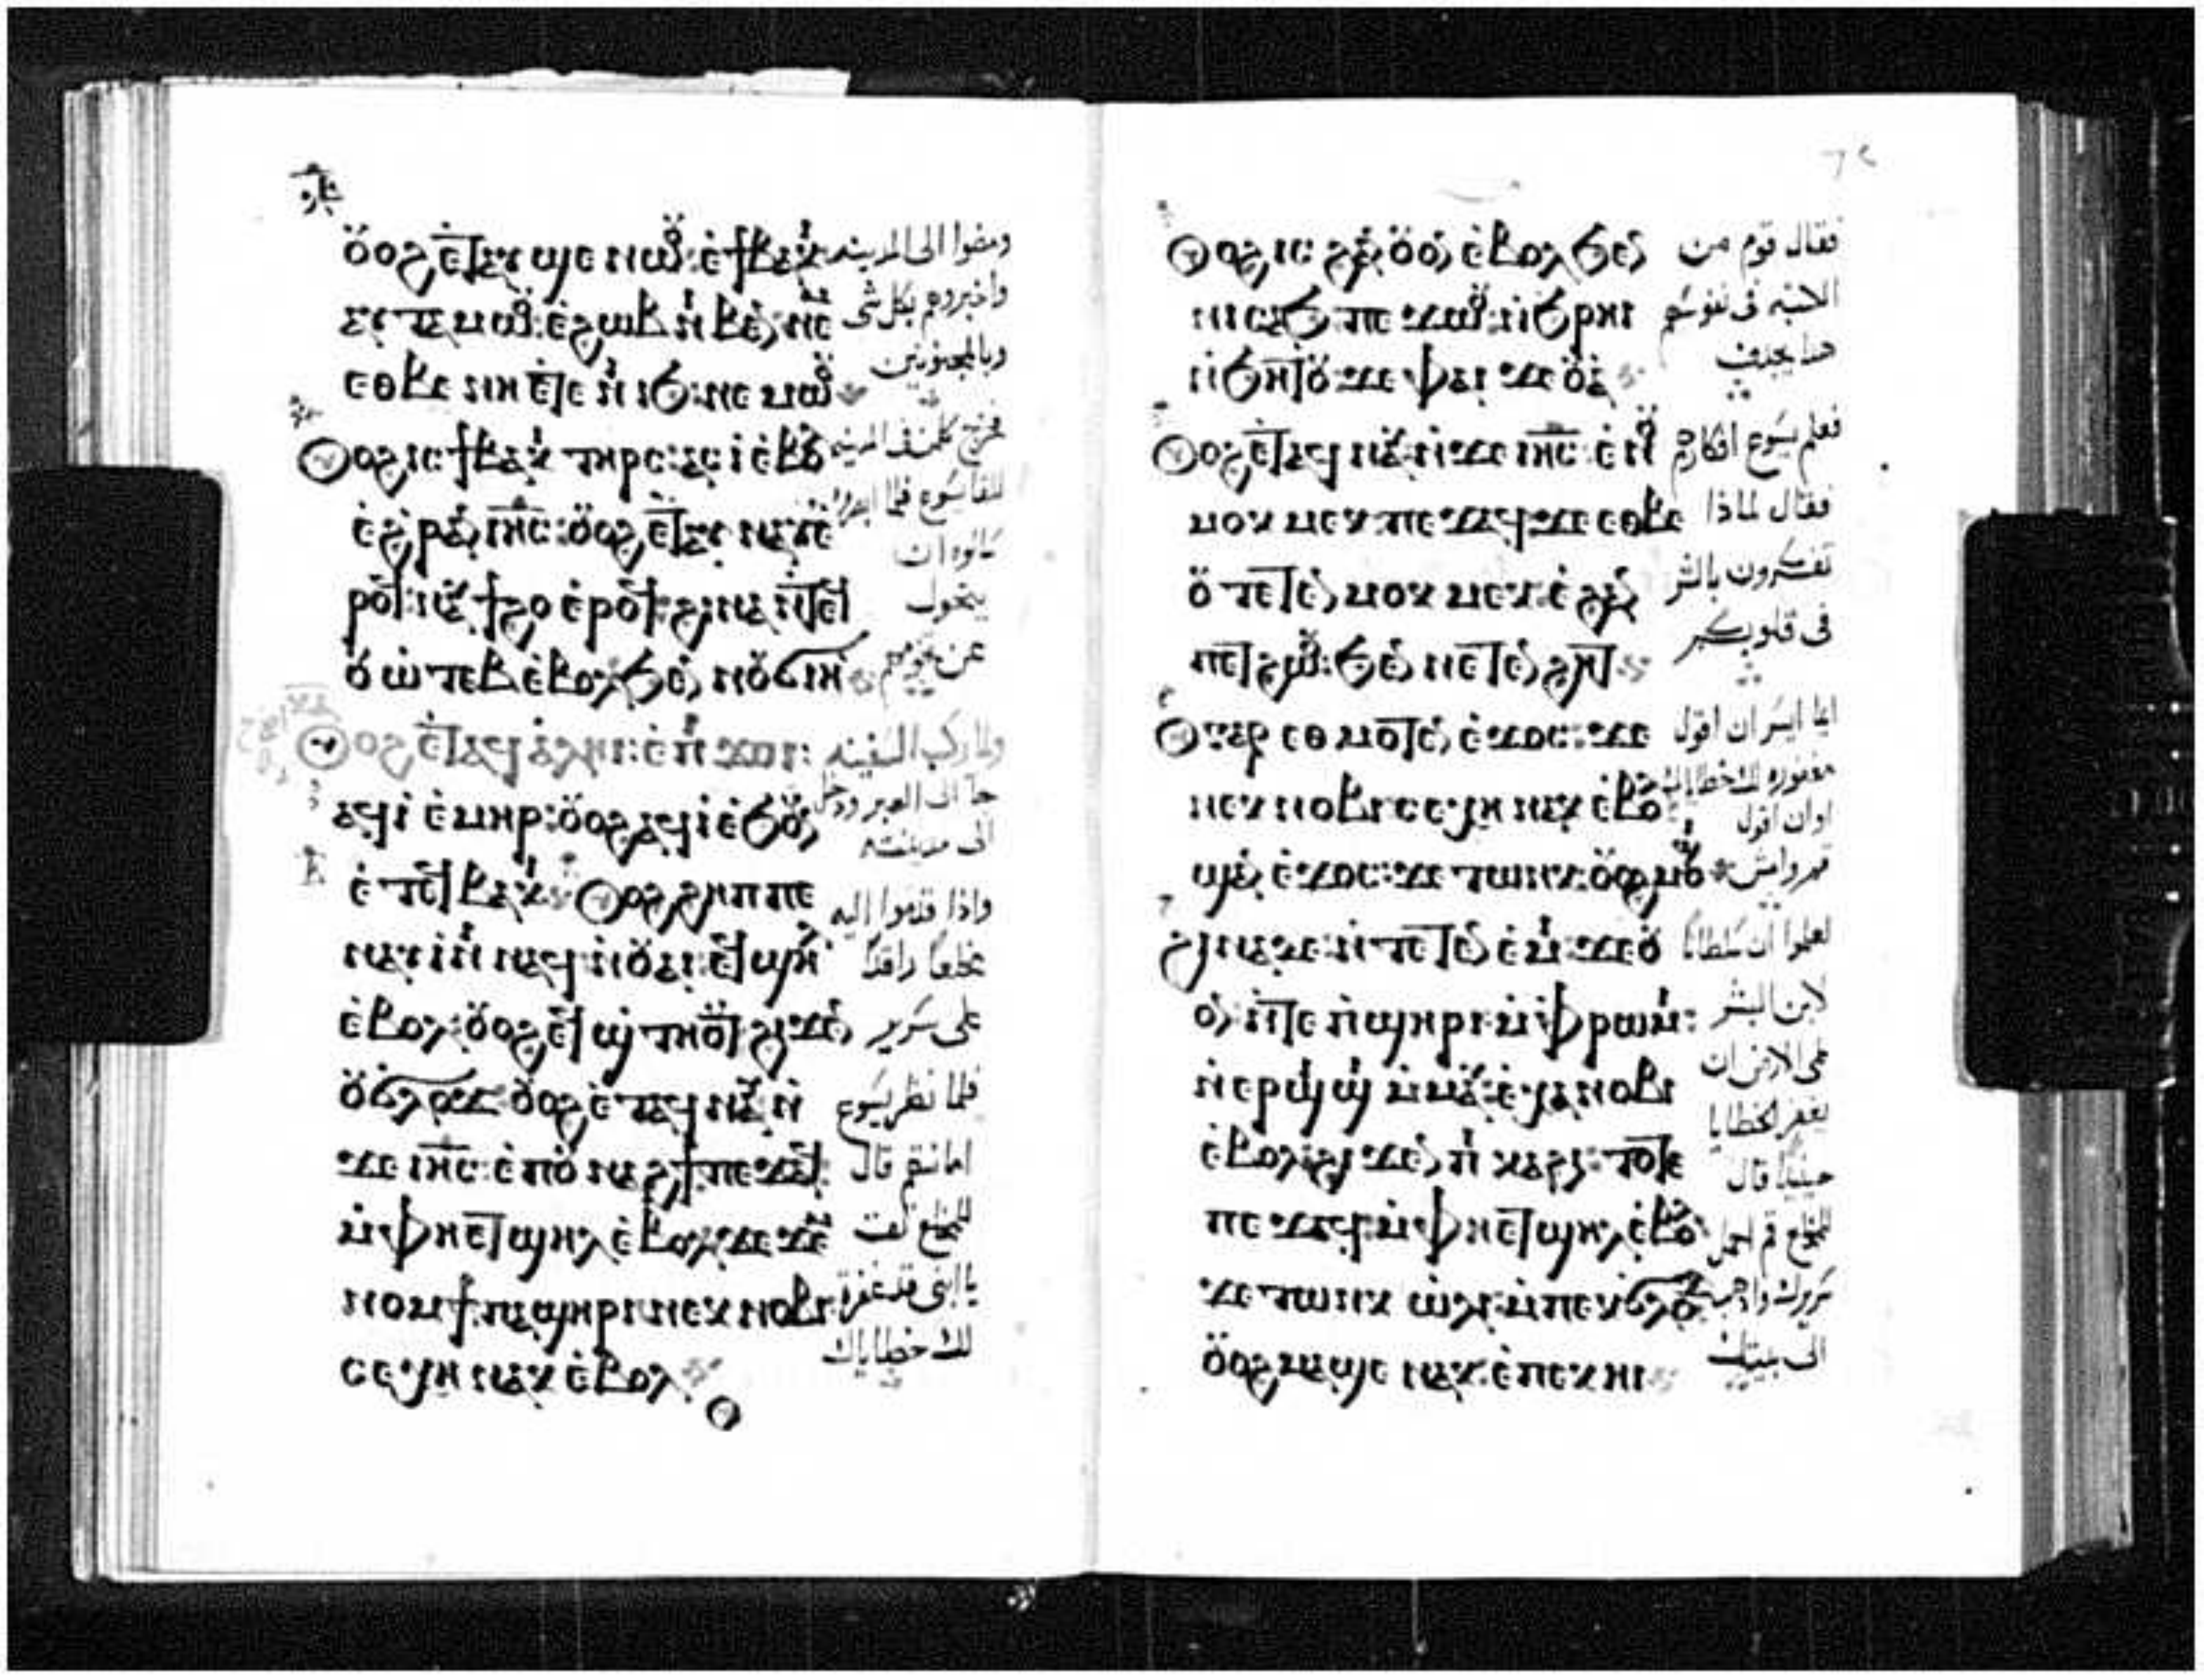 ⲟⲩⲟϩ ⲉⲧⲁⲩ ϣⲉ ⲛⲱⲟⲩ ⲉϯⲃⲁⲕⲓ ومضوا الى المدينه
ⲁⲩⲧⲁⲙⲱⲟⲩ ⲉϩⲱⲃ ⲛⲓⲃⲉⲛ ⲛⲉⲙ واخبروهم بكل شى
ⲉⲑⲃⲉ ⲛⲏ ⲉⲧⲉ ⲛⲓⲓϧ ⲛⲉⲙⲱⲟⲩ وبالمجنونين
ⲟⲩⲟϩ ⲓⲥ ϯⲃⲁⲕⲓ ⲧⲏⲣⲥ ⲁⲥⲓ ⲉⲃⲟⲗ فخرج كلمن فى المدينه
ⲉϩⲣⲉⲛ ⲓⲏⲥ ⲟⲩⲟϩ ⲉⲧⲁⲩ ⲛⲁⲩ ⲉ للقا يسوع فلما ابصروه
سالوه ان
ⲣⲟϥ ⲛⲁⲩϯϩⲟ ⲉⲣⲟϥ ϩⲓⲛⲁ ⲛⲧⲉϥ يتحول
ⲟⲩⲱⲧⲉⲃ ⲉⲃⲟⲗ ϧⲉⲛ ⲛⲟⲩϭⲓⲏ عن تخومهم
ⲟⲩⲟϩ ⲉⲧⲁϥ ⲁⲗⲏⲓ ⲉⲡϫⲟⲓ ولما ركب السفينه
ⲁϥⲓ ⲉⲙⲏⲣ ⲟⲩⲟϩ ⲁϥⲓ ⲉϧⲟⲩⲛ جا الى العبر ودخل
الى مدينته
ⲉⲧⲉϥⲃⲁⲕⲓ ⲟⲩⲟϩ ϩⲏⲡⲡⲉ واذا قدموا اليه
ⲛⲁⲩⲓⲛⲓ ⲛⲁϥ ⲛⲟⲩⲁⲓ ⲉϥϣⲏⲗ مخلعا راقدا
ⲉⲃⲟⲗ ⲟⲩⲟϩ ⲉϥϣⲧⲏⲟⲩⲧ ϩⲓϫⲉⲛ على سرير
ⲟⲩϭⲗⲟϫ ⲟⲩⲟϩ ⲉⲧⲁϥⲛⲁⲩ ⲛ فلما نظر يسوع
ϫⲉ ⲓⲏⲥ ⲉⲡⲟⲩⲛⲁϩϯ ⲡⲉϫⲁϥ امانتهم قال
ⲙⲫⲏⲉⲧϣⲏⲗ ⲉⲃⲟⲗ ϫⲉ ϫⲉⲙ للمخلع ثق
ⲛⲟⲙϯ ⲡⲁϣⲏⲣⲓ ⲛⲉⲕⲛⲟⲃⲓ يا ابنى قد غفرة
ⲥⲉⲭⲏ ⲛⲁⲕ ⲉⲃⲟⲗ لك خطاياك
ⲟⲩⲟϩ ⲓⲥ ϩⲁⲛⲟⲩⲟⲛ ⲉⲃⲟⲗ ϧⲉⲛ فقال قوم من
ⲛⲓⲥⲁϧ ⲡⲉϫⲱⲟⲩ ⲛϧⲣⲏⲓ الكتبه فى نفوسهم
ⲛϧⲏⲧⲟⲩ ϫⲉ ⲫⲁⲓ ϫⲉⲟⲩⲁ هدا يجدف
ⲟⲩⲟϩ ⲉⲧⲁϥⲛⲁⲩ ⲛϫⲉ ⲓⲏⲥ ⲉⲛⲟⲩ فعلم يسوع افكارهم
ⲙⲟⲕⲙⲉⲕ ⲡⲉϫⲁϥ ϫⲉ ⲉⲑⲃⲉ فقال لماذا
ⲟⲩ ⲧⲉⲧⲉⲛⲙⲟⲕⲙⲉⲕ ⲉϩⲁⲛ تفكرون بالشر
ⲡⲉⲧϩⲱⲟⲩ ϧⲉⲛ ⲛⲉⲧⲉⲛϩⲏⲧ فى قلوبكم
ⲟⲩ ⲅⲁⲣ ⲉⲑⲙⲟⲧⲉⲛ ⲉϫⲟⲥ ϫⲉ ايما ايسر ان اقول
ⲛⲉⲕⲛⲟⲃⲓ ⲥⲉⲭⲏ ⲛⲁⲕ ⲉⲃⲟⲗ مغفوره لك خطاياك
او ان اقول
ϣⲁⲛ ⲉϫⲟⲥ ϫⲉ ⲧⲱⲛⲕ ⲟⲩⲟϩ ⲙⲟϣⲓ قم وامش
ϩⲓⲛⲁ ϫⲉ ⲛⲧⲉⲧⲉⲛⲉⲙⲓ ϫⲉ ⲟⲩ لتعلموا ان سلطانا
ⲟⲛ ⲛⲧⲉ ⲡϣⲏⲣⲓ ⲙⲫⲣⲱⲙⲓ لابن البشر
ⲛⲉⲣϣⲓϣⲓ ⲙⲙⲁⲩ ⲉⲭⲁ ⲛⲟⲃⲓ على الارض ان
يغفر الخطايا
ⲉⲃⲟⲗ ϩⲓϫⲉⲛ ⲡⲕⲁϩⲓ ⲧⲟⲧⲉ حينيذ قال
ⲡⲉϫⲁϥ ⲙⲫⲏⲉⲧϣⲏⲗ ⲉⲃⲟⲗ للمخلع قم احمل
ϫⲉ ⲧⲱⲛⲕ ⲱⲗⲓ ⲙⲡⲉⲕϭⲗⲟϫ سريرك واذهب
ⲟⲩⲟϩ ⲙⲁϣⲉ ⲛⲁⲕ ⲉⲡⲉⲕⲏⲓ الى بيتك